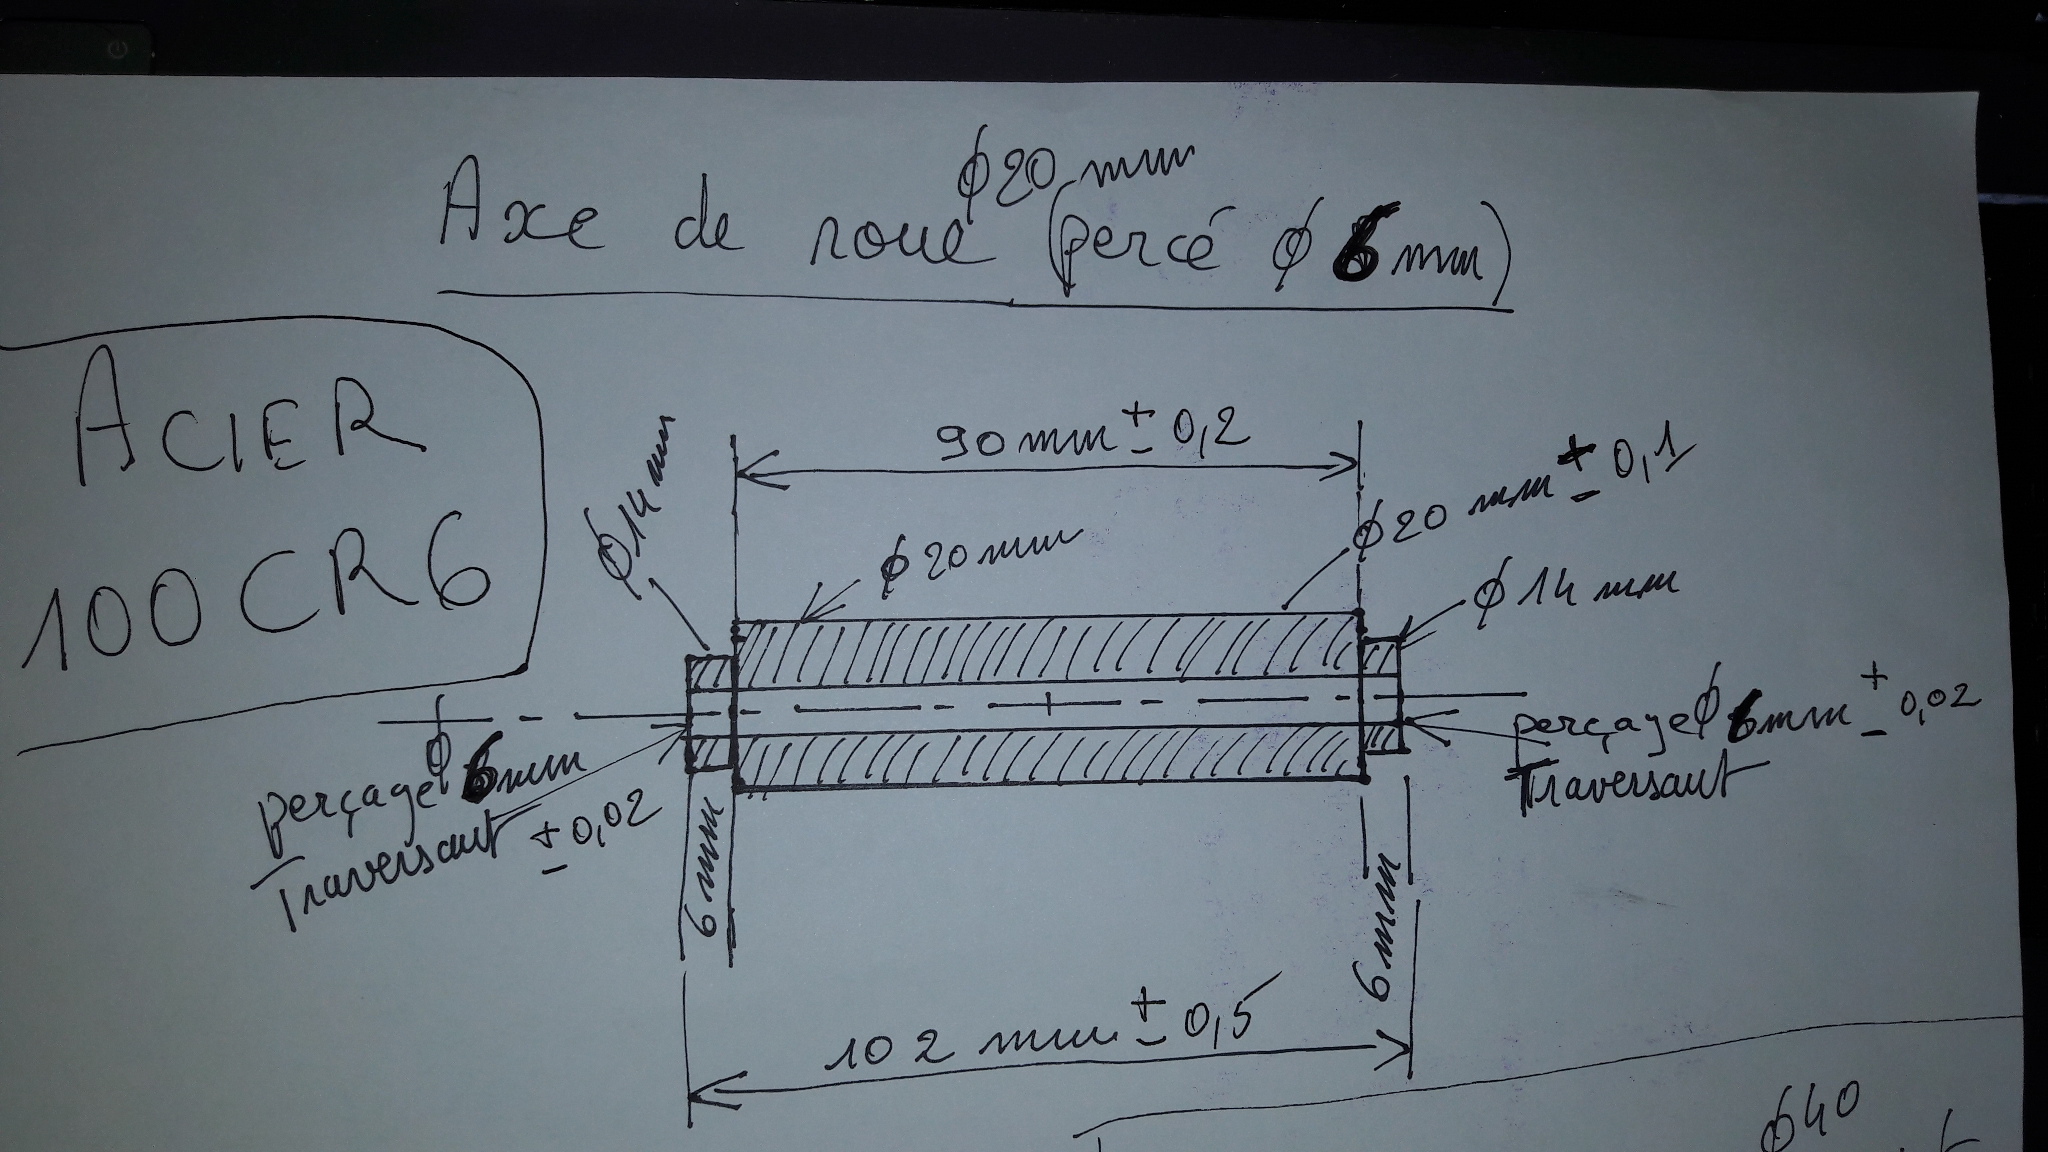 ϕ20 mm
Axe de roue (percé ϕ 6 mm)
ACIER
100CR6
90 mm ± 0,2
ϕ14 mm
ϕ20 mm
ϕ20 mm ± 0,1
ϕ 14 mm
perçage ϕ 6mm
Traversant ± 0,02
perçage ϕ 6mm ± 0,02
Traversant
6 mm
6 mm
102 mm ± 0,5
ϕ40